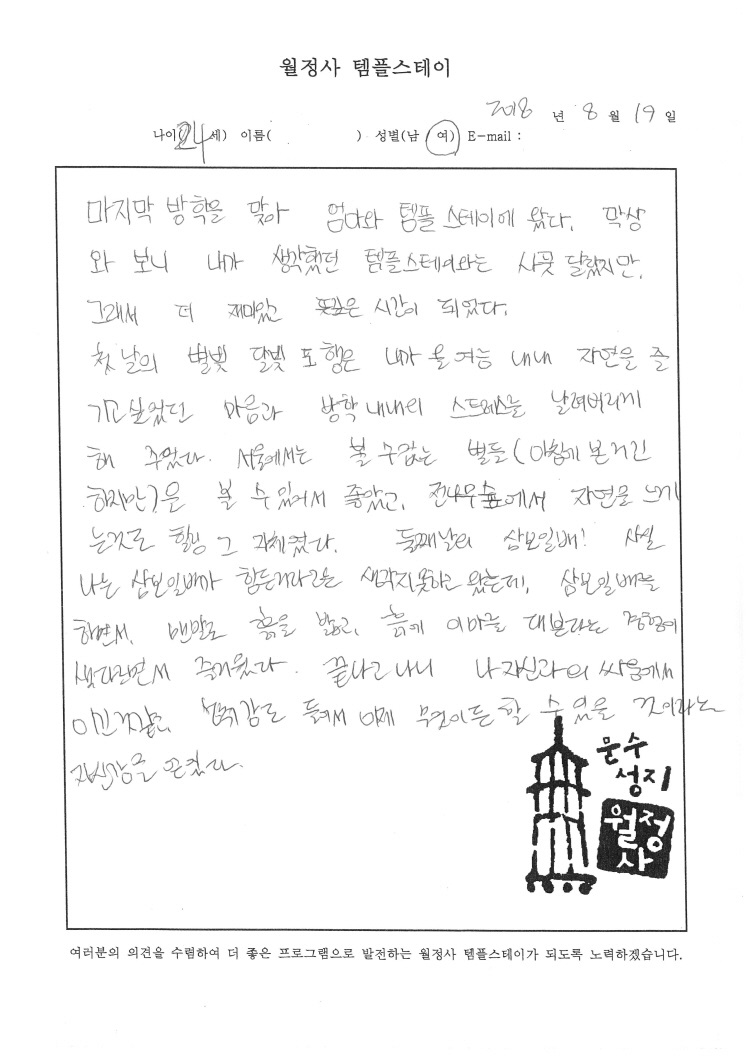 월정사 템플스테이
2018 년 8 월 19 일
나이(24세) 이름( ) 성별(남/여) E-mail :
마지막 방학을 맞아 엄마와 템플스테이에 왔다. 막상
와 보니 내가 생각했던 템플스테이와는 사뭇 달랐지만,
그래서 더 재미있고 뜻깊은 시간이 되었다.
첫 날의 별빛 달빛 포행은 내가 올 여름 내내 자연을 즐
기고싶었던 마음과 방학 내내의 스트레스를 날려버리게
해 주었다. 서울에서는 볼 수 없는 별들(아침에 본거긴
하지만)을 볼 수 있어서 좋았고, 전나무숲에서 자연을 느끼
는것도 힐링 그 자체였다. 둘째날의 삼보일배! 사실
나는 삼보일배가 힘든거라고는 생각지못하고 왔는데, 삼보일배를
하면서, 맨발로 흙을 밟고, 흙에 이마를 대본다는 경험이
색다르면서 즐거웠다. 끝나고 나니 나 자신과의 싸움에서
이긴것같고, 성취감도 들어서 이제 무엇이든 할 수 있을 것이라는
자신감을 얻었다.
문수
성지
월정
사
여러분의 의견을 수렴하여 더 좋은 프로그램으로 발전하는 월정사 템플스테이가 되도록 노력하겠습니다.